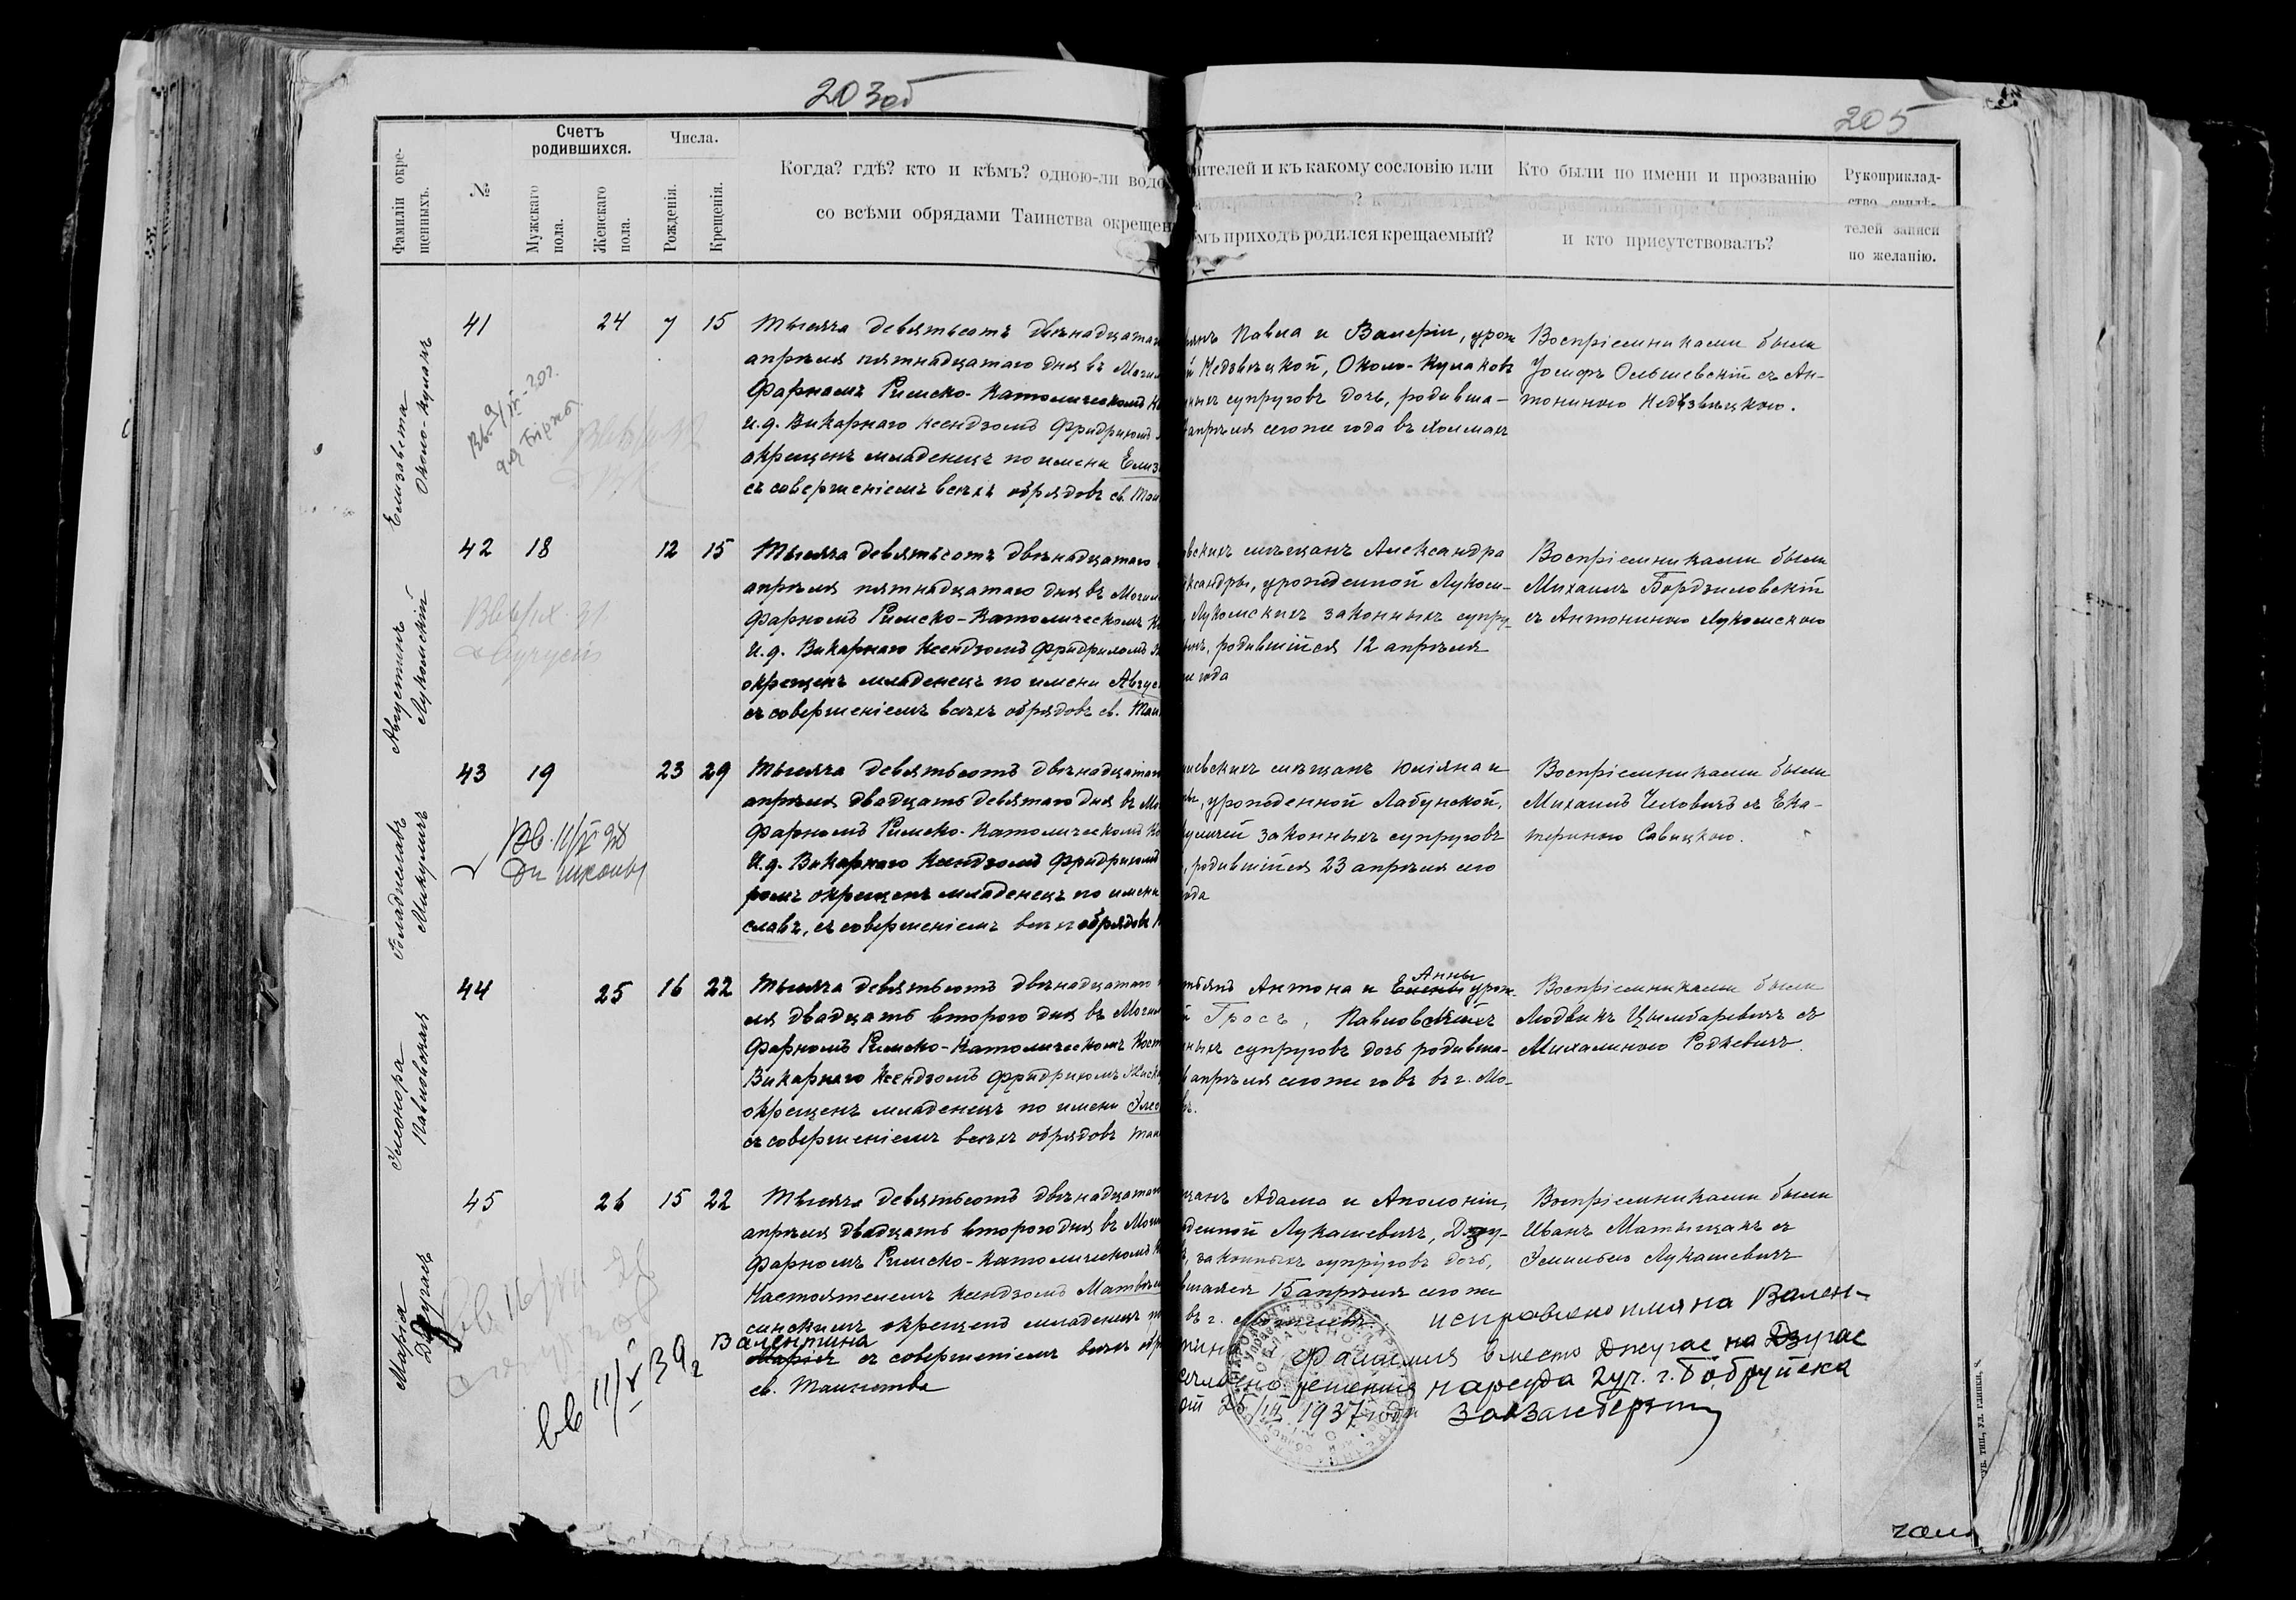 203об
205
Фамиліи окре-
щенныхъ.
№
Счетъ
родившихся.
Мужскаго
пола.
Женскаго
пола.
Числа.
Рожденія.
Крещенія.
Когда? гдѣ? кто и кѣмъ? одною-ли водо
со всѣми обрядами Таинства окрещен
ителей и къ какому сословію или
?
мъ приходѣ родился крещаемый?
Кто были по имени и прозванію
и кто присутствовалъ?
Рукоприклад-
ство свидѣ-
телей записи
по желанію.
Елизавета
Около-Кулакъ
41
24 7 15
Тысяча девятьсотъ двѣнадцатаг
апрѣля пятнадцатаго дня въ Могил
Фарномъ Римско-Католическомъ Ко
и.д. Викарнаго Ксендзомъ Фридрихомъ
окрещенъ младенецъ по имени Елиз
съ совершеніемъ всѣхъ обрядовъ св. Таи
янъ Павла и Валеріи, урож
й Недзвѣцкой, Около-Кулаковъ
ныхъ супруговъ дочь, родивша-
апрѣля сего же года въ Холмах
Воспріемниками были
Іосифъ Ольшевскій съ Ан-
тониною Недзвѣцкою.
Августинъ
Лукомскій
42 18
12 15
Тысяча девятьсотъ двѣнадцатаго
апрѣля пятнадцатаго дня въ Могил
Фарномъ Римско-Католическомъ Ко
И.д. Викарнаго Ксендзомъ Фридрихомъ
окрещенъ младенецъ по имени Авгус
съ совершеніемъ всѣхъ обрядовъ св. Таи
вскихъ мѣщанъ Александра
ксандры, урожденной Луком-
Лукомскихъ законныхъ супру-
ынъ, родившійся 12 апрѣля
же года
Воспріемниками были
Михаилъ Бордзиловскій
съ Антониною Лукомскою
Болеславъ
Микуличъ
43 19
23 29
Вв. 11/IV 28
Дл школы
Тысяча девятьсотъ двѣнадцатаг
апрѣля двадцать девятаго дня въ Мо
Фарномъ Римско-Католическомъ Ко
И.д. Викарнаго Ксендзомъ Фридрихомъ
ромъ окрещенъ младенецъ по имени
славъ, съ совершеніемъ всѣхъ обрядовъ
левскихъ мѣщанъ Юліяна и
ы, урожденной Лабунской,
куличей законныхъ супруговъ
, родившійся 23 апрѣля сего
года
Воспріемниками были
Михаилъ Человичъ съ Ека-
териною Савицкою.
Элеонора
Павловская
44
25 16 22
Тысяча девятьсотъ двѣнадцатаго
ля двадцать второго дня въ Могил
Фарномъ Римско-Католическомъ Кост
Викарнаго Ксендзомъ Фридрихомъ
окрещенъ младенецъ по имени Элео
съ совершеніемъ всѣхъ обрядовъ таи
Анны
тьянъ Антона и Елены урож-
й Гросъ, Павловскихъ
ныхъ супруговъ дочь родивша-
апрѣля сего же года въ г. Мо-
вѣ.
Воспріемниками были
Людвикъ Цымбаревичъ съ
Михалиною Родкевичъ.
Марія
Дзугасъ
45
26 15 22
вв 11/V 39г
Тысяча девятьсотъ двѣнадцатаг
апрѣля двадцать второго дня въ Моги
Фарномъ Римско-Католическомъ К
Настоятелемъ Ксендзомъ Матвѣем
синскимъ окрещенъ младенецъ п
Валентина
Марія съ совершеніемъ всѣхъ обр
св. Таинства
щанъ Адама и Аполоніи,
жденной Лукашевичъ, Дзу-
законныхъ супруговъ дочь,
вшаяся 15 апрѣля сего же
въ г. Могилевѣ.
Воспріемниками были
Иванъ Матыцанъ съ
Эмилью Лукашевичъ
исправлено имя на Вален-
тина Фамилия вместо Джугас на Дзугас
решения нарсуда 2 уч. г. Бобруйска
25/IV 1937 года